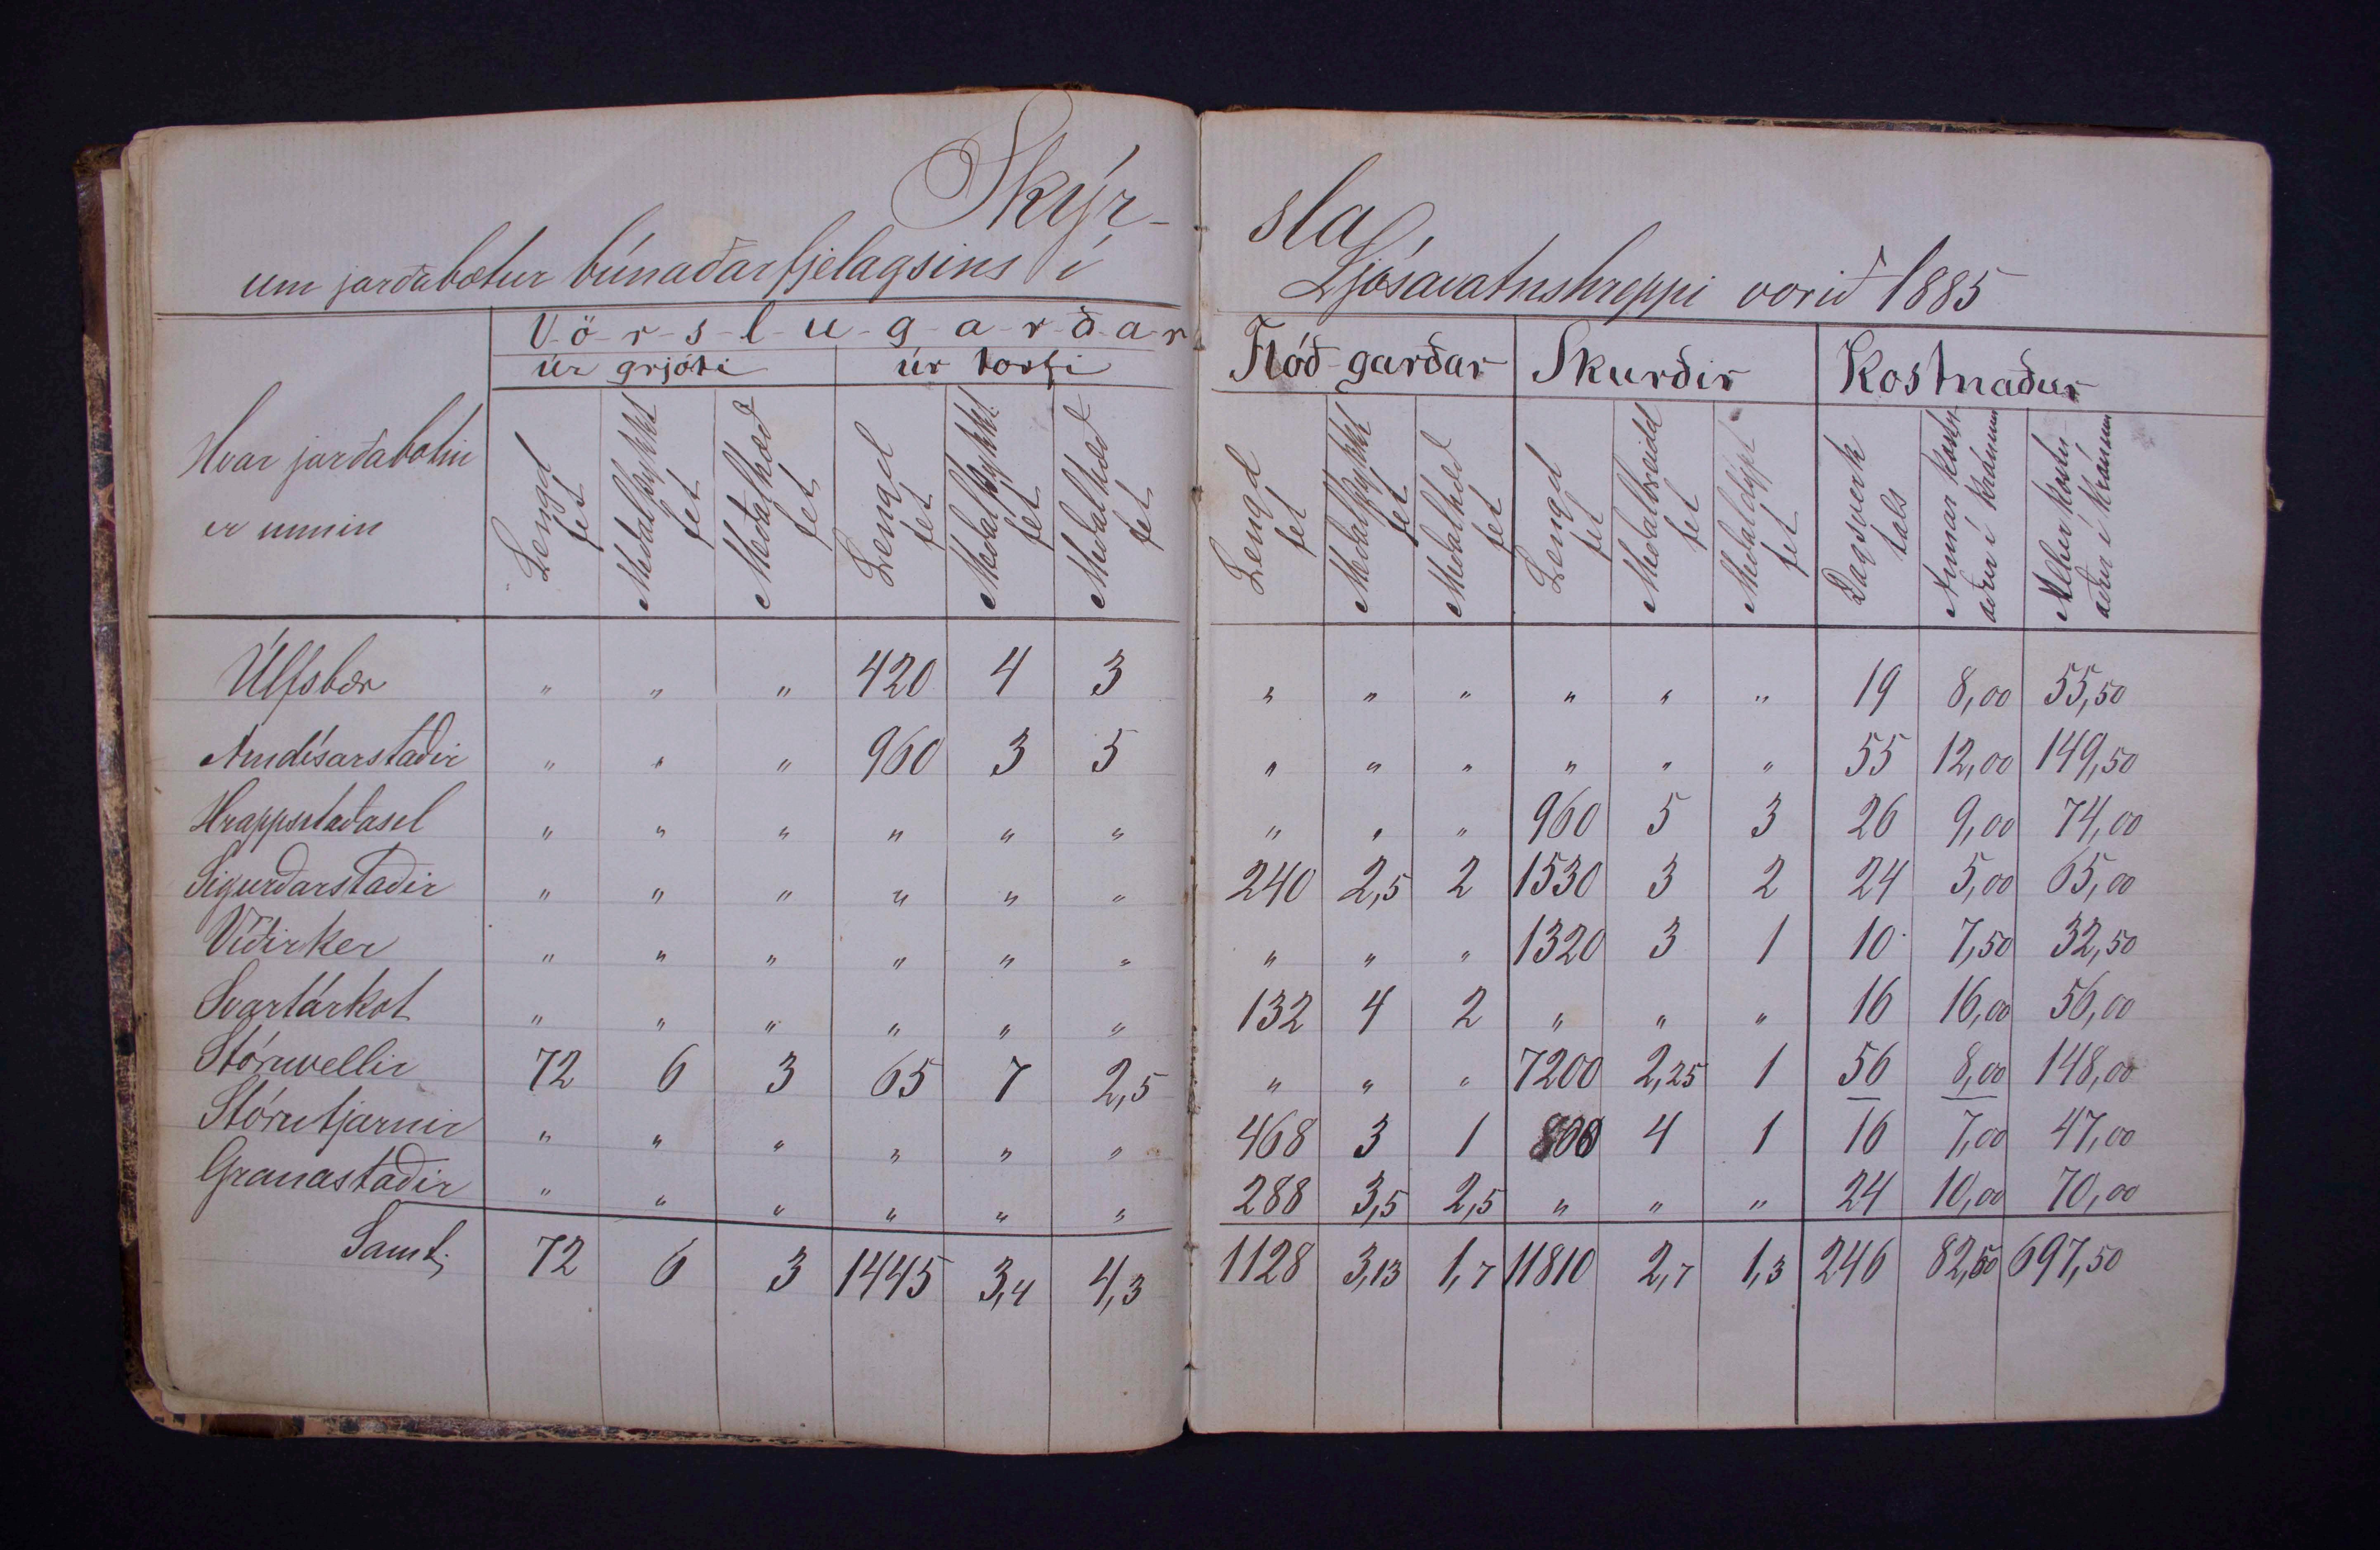 Skýr- sla
um jarðabætur búnaðarfjelagsins í Ljósavatnshreppi vorið 1885
V-ö-r-s-l-u-g-a-r-ð-a-r Flóð-garðar Skurðir Kostnaður
úr grjóti úr torfi
Hvar jarðabótin er unnin
Lengd fet Meðalþykkt fet Meðalhæð fet Lengd fet Meðalþykkt fet Meðalhæð fet Lengd fet Meðalþykkt fet Meðalhæð fet Lengd fet Meðalbreidd fet Meðaldýpt fet Dagsverk tals Annar kostn aður í krónum Allur kostn aður í krónum
Úlfsbær " " " 420 4 3 " " " " " " 19 8,00 55,50
Arndísarstaðir " " " 960 3 5 " " " " " " 55 12,00 149,50
Hrappsstaðasel " " " " " " " " " 960 5 3 26 9,00 74,00
Sigurðarstaðir " " " " " " 240 2,5 2 1530 3 2 24 5,00 65,00
Víðirker " " " " " " " " " 1320 3 1 10 7,50 32,50
Svartárkot " " " " " " 132 4 2 " " " 16 16,00 56,00
Stóruvellir 72 6 3 65 7 2,5 " " " 7200 2,25 1 56 8,00 148,00
Stórutjarnir " " " " " " 468 3 1 800 4 1 16 7,00 47,00
Granastaðir " " " " " " 288 3,5 2,5 " " " 24 10,00 70,00
Samt. 72 6 3 1445 3,4 4,3 1128 3,13 1,7 11810 2,7 1,3 246 82,50 697,50